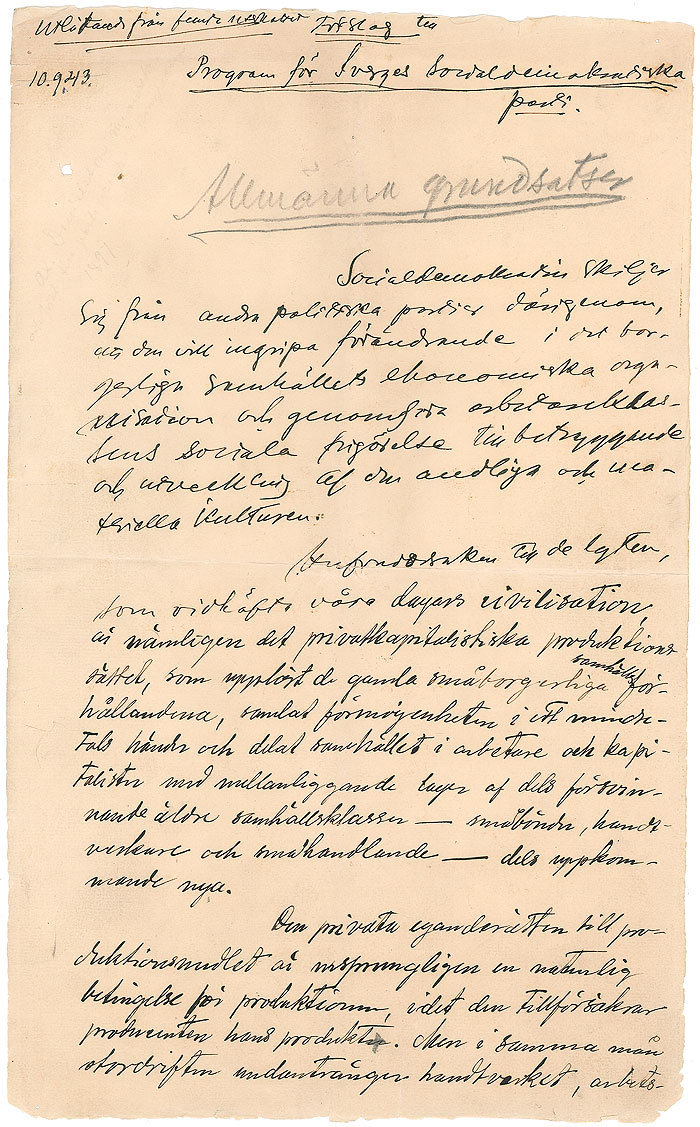 Utlåtande från femte utskottet Förslag till
10.9.43. Program för Sverges Socialdemokratiska
parti.
Allmänna grundsatser
Socialdemokratin skiljer
sig från andra politiska partier därigenom,
att den vill ingripa förändrande i det bor-
gerliga samhällets ekonomiska orga-
nisation och genomföra arbetareklas-
sens sociala frigörelse till betryggande
och utveckling af den andliga och ma-
teriella kulturen.
Hufvudorsaken till de lyten,
som vidhäfta våra dagars civilisation,
är nämligen det privatkapitalistiska produktions
sättet, som upplöst de gamla småborgerliga samhälls för-
hållandena, samlat förmögenheten i ett mindre-
tals händer och delat samhället i arbetare och kapi-
talister med mellanliggande lager af dels försvin-
nande äldre samhällsklasser — småbönder, handt-
verkare och småhandlande — dels uppkom-
mande nya.
Den privata eganderätten till pro-
duktionsmedlet är ursprungligen en naturlig
betingelse för produktionen, i det den tillförsäkrar
producenten hans produkter. Men i samma mån
stordriften undantränger handtverket, arbets-